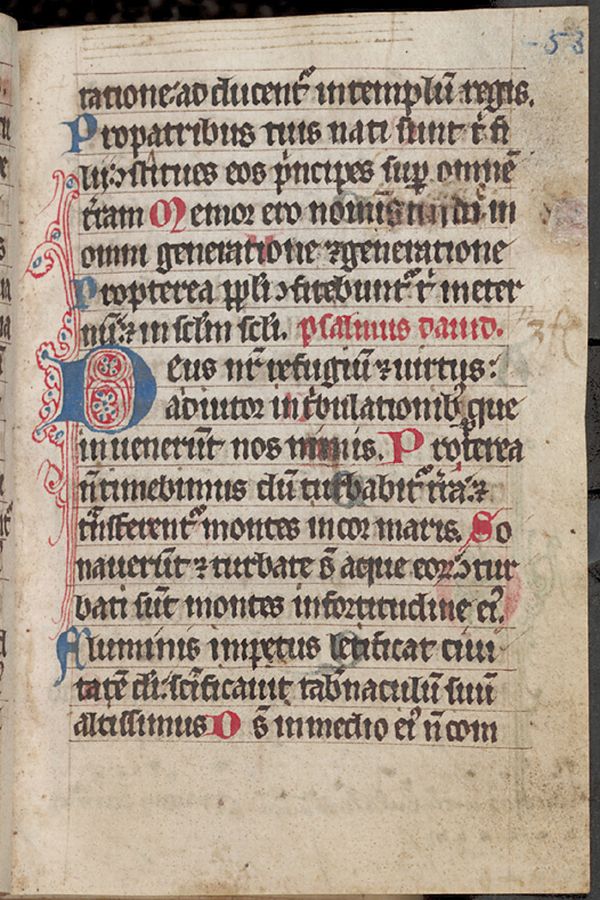 58
ratione: adducent᷑ in templū regis.
Pro patribus tuis nati sunt t̾ fi
lii: ↄstitues eos p̾ncipes suꝑ omnē
t̾ram Memor ero nominis tui dn̄e in
omni generatione ⁊ generatione
Propterea ppl̾i ↄfitebunt᷑ t̾ in eter
nū: ⁊ in sclm̄ scl̾i. psalmus dauid.
Deus nr̄ refugiū ⁊ uirtus:
adiutor in t̾bulationib; que
inuenerūt nos nimis. Propterea
n̄ timebimus dū turbabit᷑ t̾ra: ⁊
tn̄sferent᷑ montes in cor maris. So
nauerūt ⁊ turbate s̄ aque eoꝝ ↄtur
bati sūt montes in fortitudine ei᷒.
Fluminis impetus letificat ciui
tatē dī: sc̄ificauit tab̄naculū suū
altissimus D s̄ in medio ei᷒ n̄ com